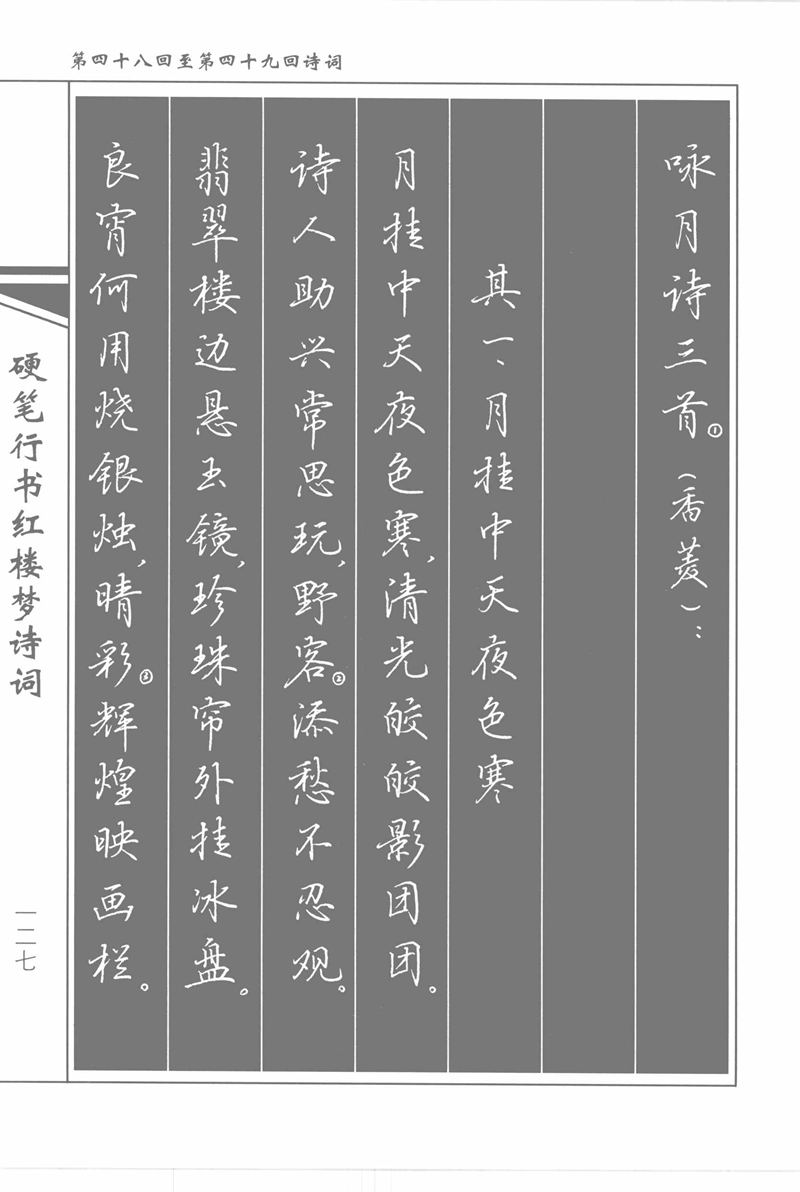 第四十八回至第四十九回诗词
咏月诗三首①(香菱):
其一、月挂中天夜色寒
月挂中天夜色寒,清光皎皎影团团。
诗人助兴常思玩,野客②添愁不忍观。
翡翠楼边悬玉镜,珍珠帘外挂冰盘。
良宵何用烧银烛,晴彩③辉煌映画栏。
硬笔行书红楼梦诗词
一二七